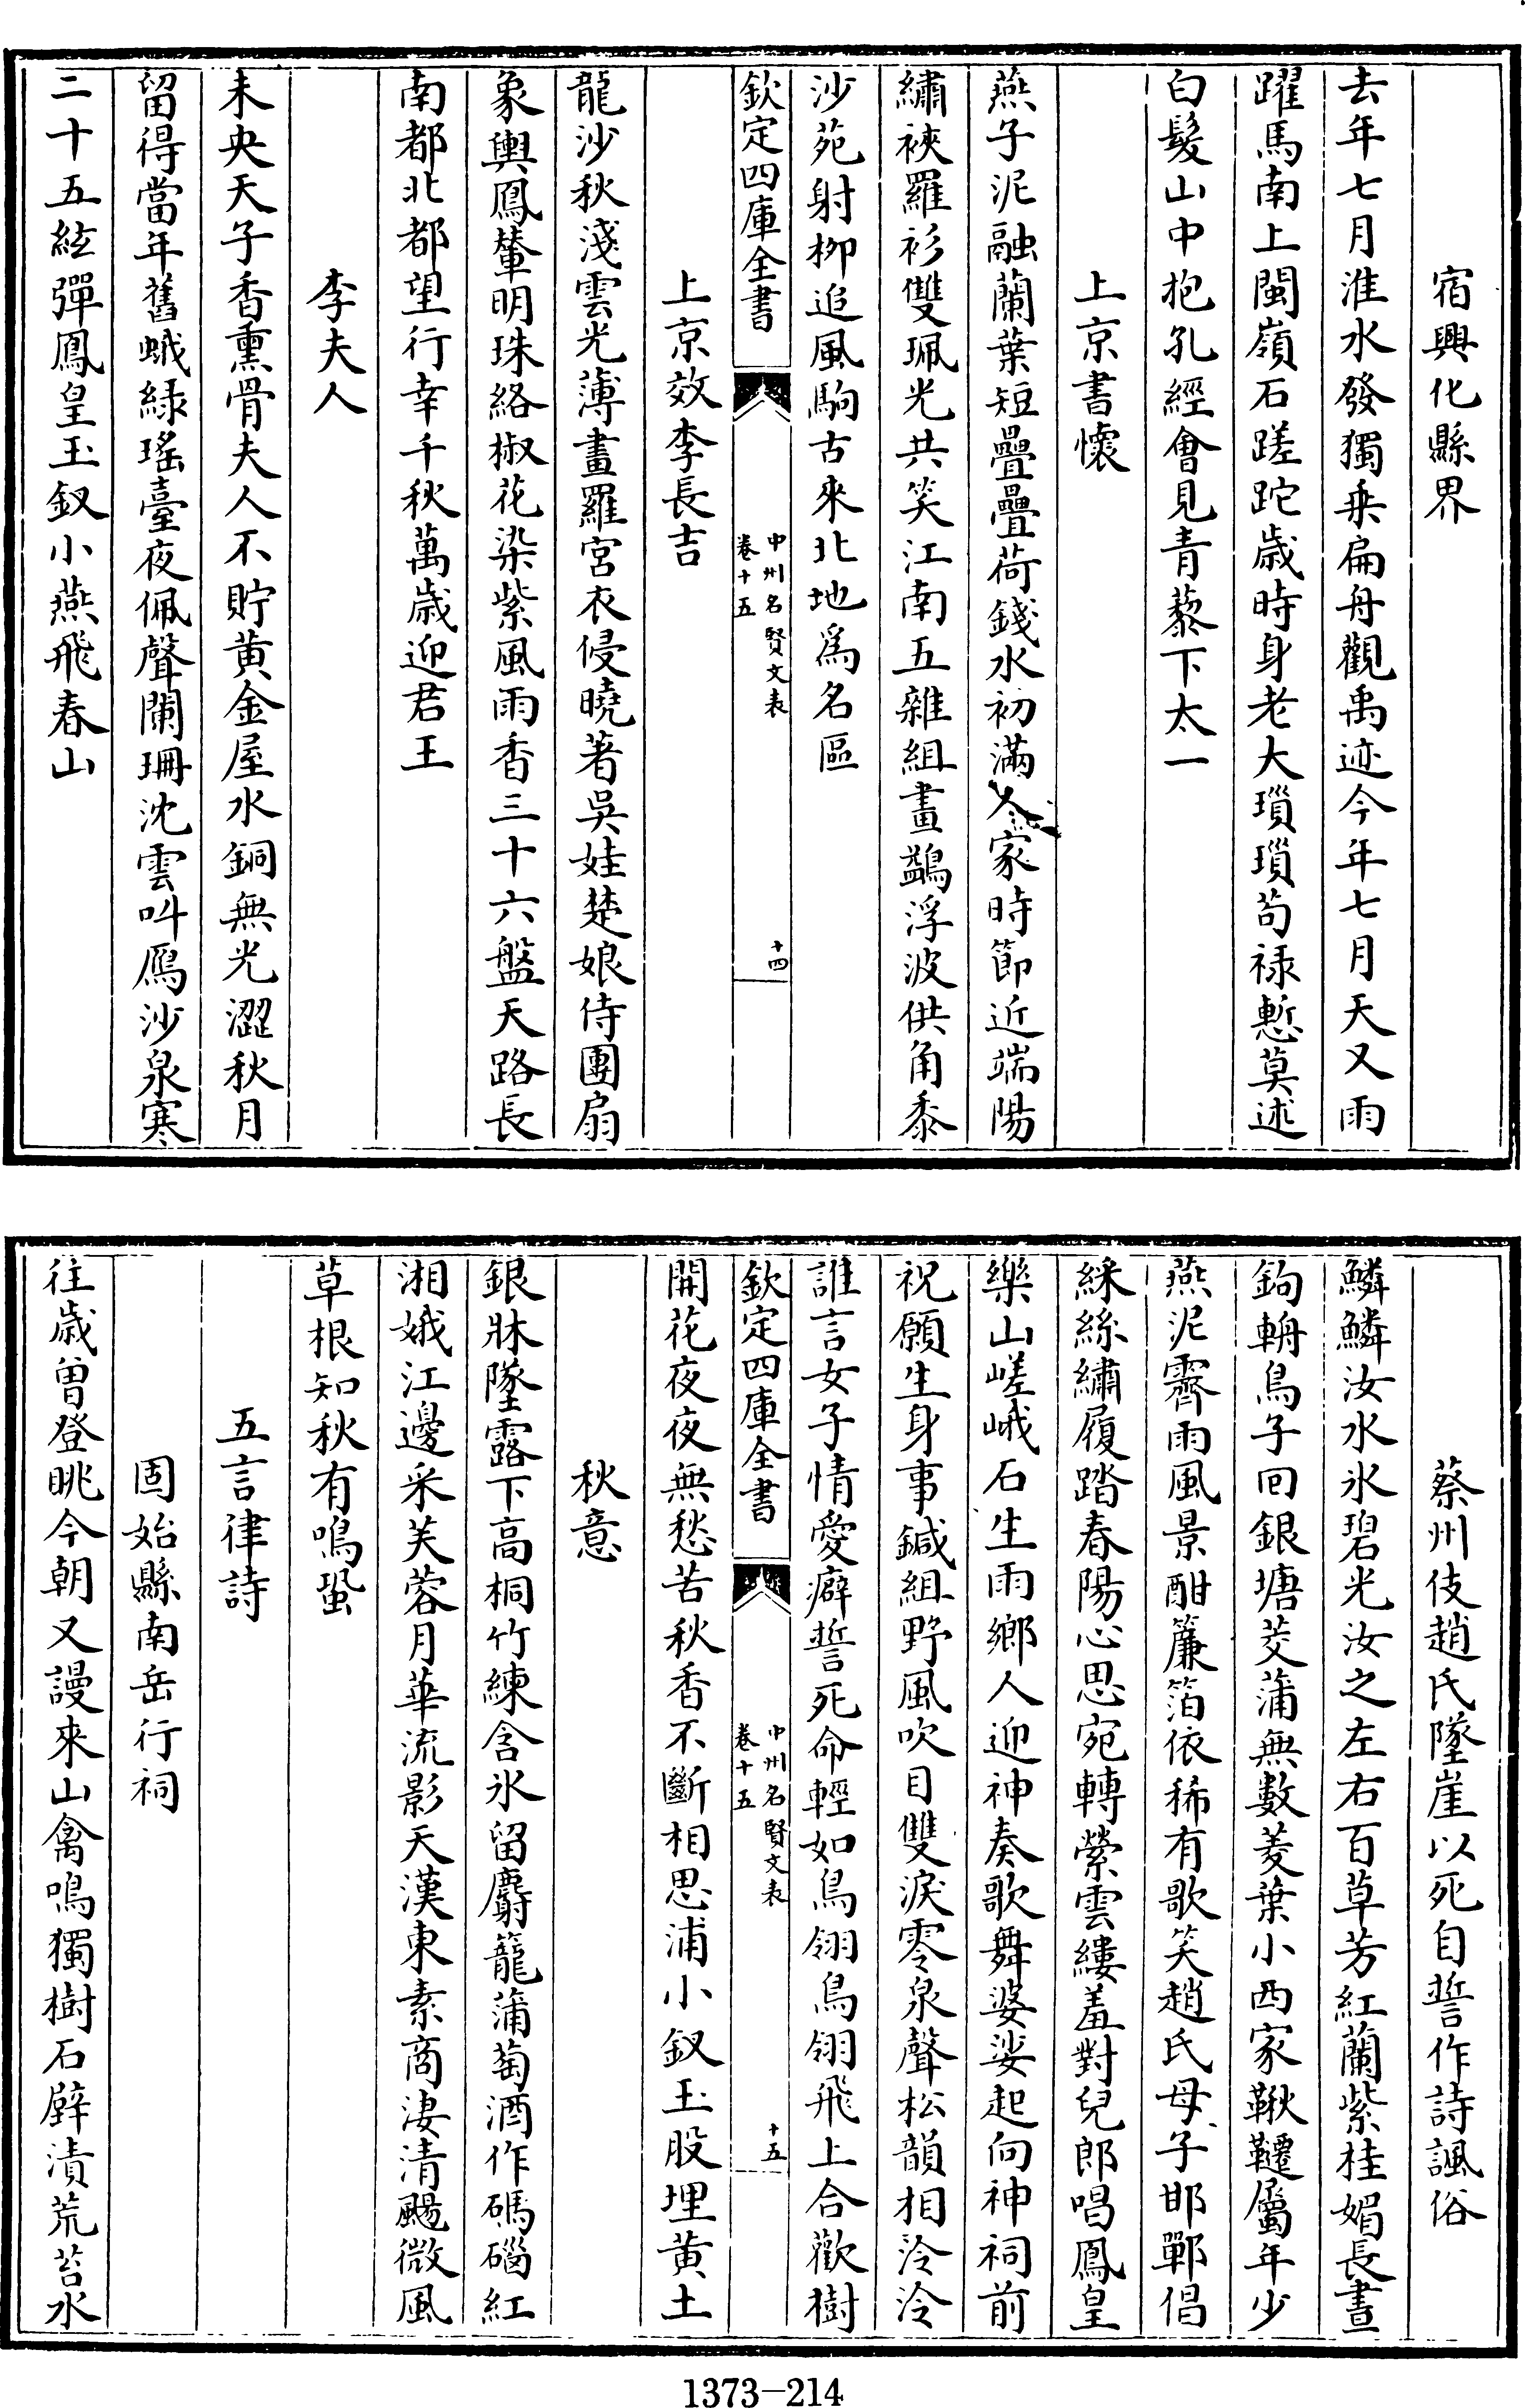 宿興化縣界
去年七月淮水發獨乗扁舟觀禹迹今年七月天又雨
躍馬南上閩嶺石蹉跎歳時身老大瑣瑣苟禄慙莫述
白髮山中抱孔經會見青藜下太一
上京書懷
燕子泥融蘭葉短疊疊荷錢水初滿人家時節近端陽
繡裌羅衫雙珮光共笑江南五雜組畫鷁浮波供角黍
沙苑射柳追風駒古來北地為名區
欽定四庫全書
中州名賢文表
卷十五
十四
上京效李長吉
龍沙秋淺雲光薄畫羅宮衣侵曉著吳娃楚娘侍團扇
象輿鳳輦明珠絡椒花染紫風雨香三十六盤天路長
南都北都望行幸千秋萬歳迎君王
李夫人
未央天子香熏骨夫人不貯黄金屋水銅無光澀秋月
留得當年舊蛾緑瑤臺夜佩聲闌珊沈雲叫鴈沙泉寒
二十五絃彈鳳皇玉釵小燕飛春山
蔡州伎趙氏墜崖以死自誓作詩諷俗
鱗鱗汝水氷碧光汝之左右百草芳紅蘭紫桂媚長晝
鉤輈鳥子回銀塘茭蒲無數菱葉小西家鞦韆屬年少
燕泥霽雨風景酣簾箔依稀有歌笑趙氏母子邯鄲倡
綵絲繡履踏春陽心思宛轉縈雲縷羞對兒郎唱鳳皇
樂山嵯峨石生雨鄉人迎神奏歌舞婆娑起向神祠前
祝願生身事鍼組野風吹目雙淚零泉聲松韻相泠泠
誰言女子情愛癖誓死命輕如鳥翎鳥翎飛上合歡樹
欽定四庫全書
中州名賢文表
卷十五
十五
開花夜夜無愁苦秋香不斷相思浦小釵玉股埋黄土
秋意
銀牀墜露下高桐竹練含氷留麝籠蒲萄酒作碼碯紅
湘娥江邊采芙蓉月華流影天漢東素商淒清颺微風
草根知秋有鳴蛩
五言律詩
固始縣南岳行祠
往歳曽登眺今朝又謾來山禽鳴獨樹石壁漬荒苔水
1373—214